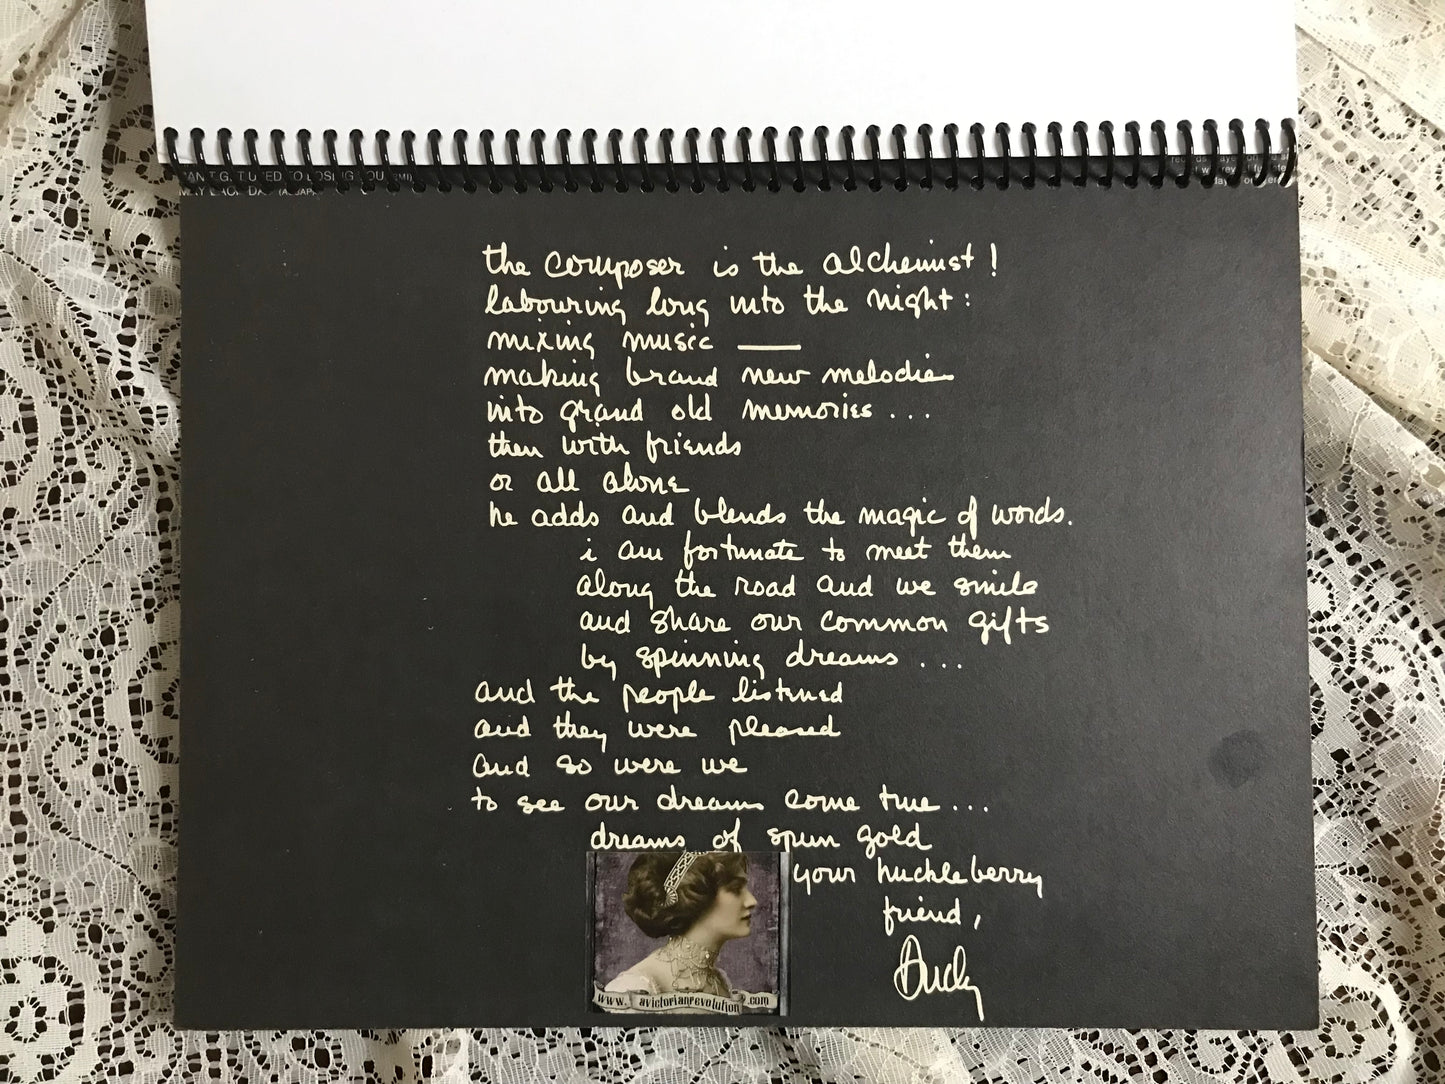 CAN'T GET USED TO LOSING YOU (BMI)
the composer is the alchemist!
labouring long into the night:
mixing music —
making brand new melodies
into grand old memories...
then with friends
or all alone
he adds and blends the magic of words.
i am fortunate to meet them
along the road and we smile
and share our common gifts
by spinning dreams...
and the people listened
and they were pleased
and so were we
to see our dreams come true...
dreams of spun gold
your huckleberry
friend,
Andy
www. avictorianrevolution .com